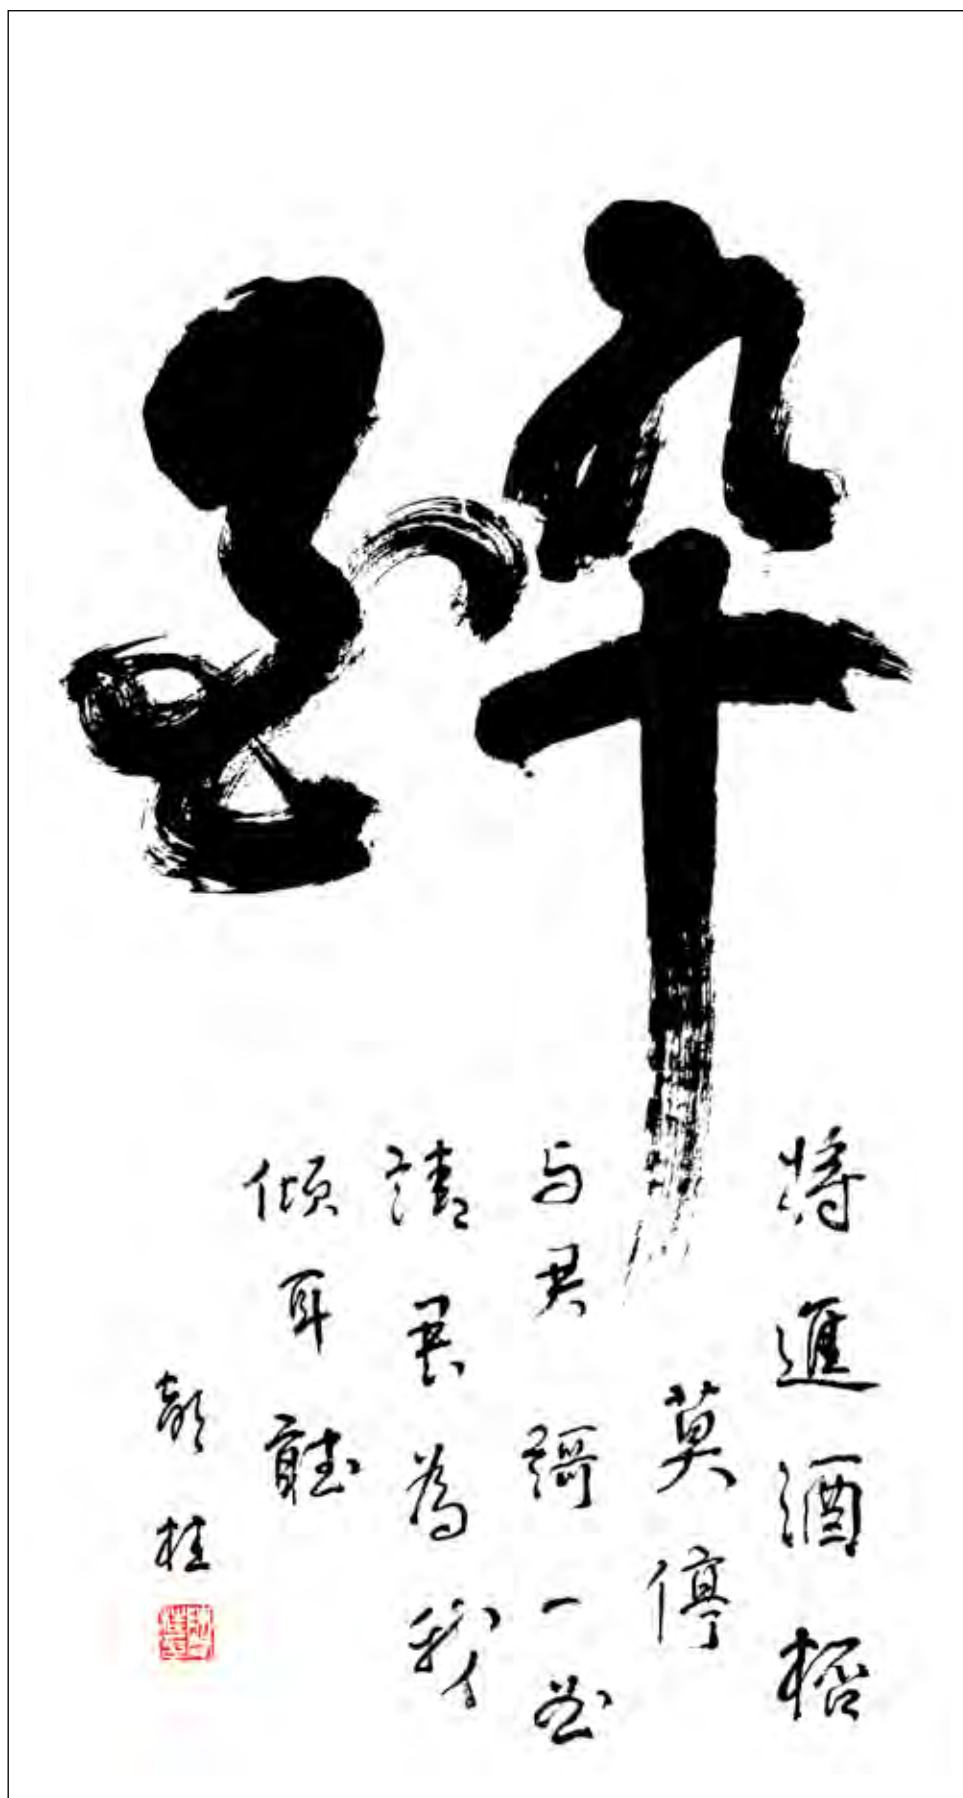 醉
將進酒桮
莫停
与君謌一曲
請君為我
傾耳聽
桂